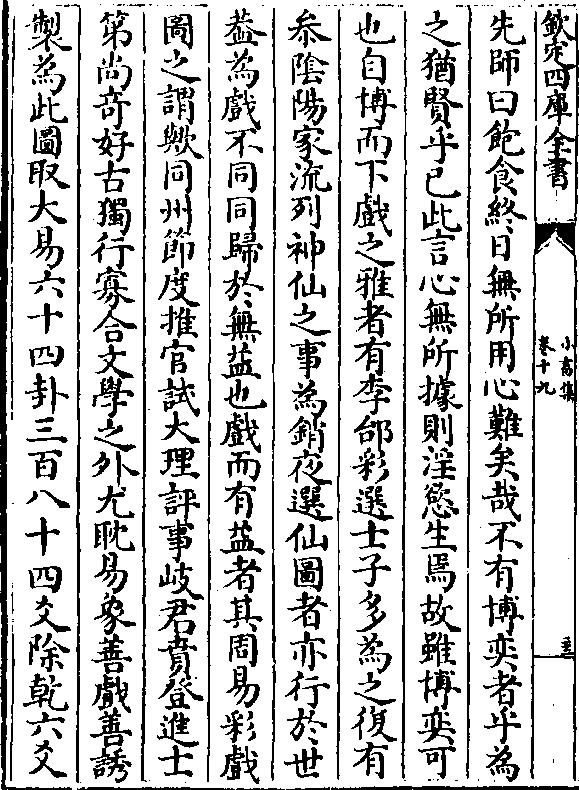 欽定四庫全書
小畜集
卷十九
先師曰飽食終日無所用心難矣哉不有博奕者乎為
之猶賢乎已此言心無所據則淫慾生焉故雖博奕可
也自博而下戲之雅者有李郃彩選士子多為之復有
叅陰陽家流列神仙之事為銷夜選仙圖者亦行於世
葢為戲不同同歸於無益也戲而有益者其周易彩戲
圖之謂歟同州節度推官試大理評事岐君賁登進士
第尚奇好古獨行寡合文學之外尤耽易象善戲善誘
製為此圖取大易六十四卦三百八十四爻除乾六爻